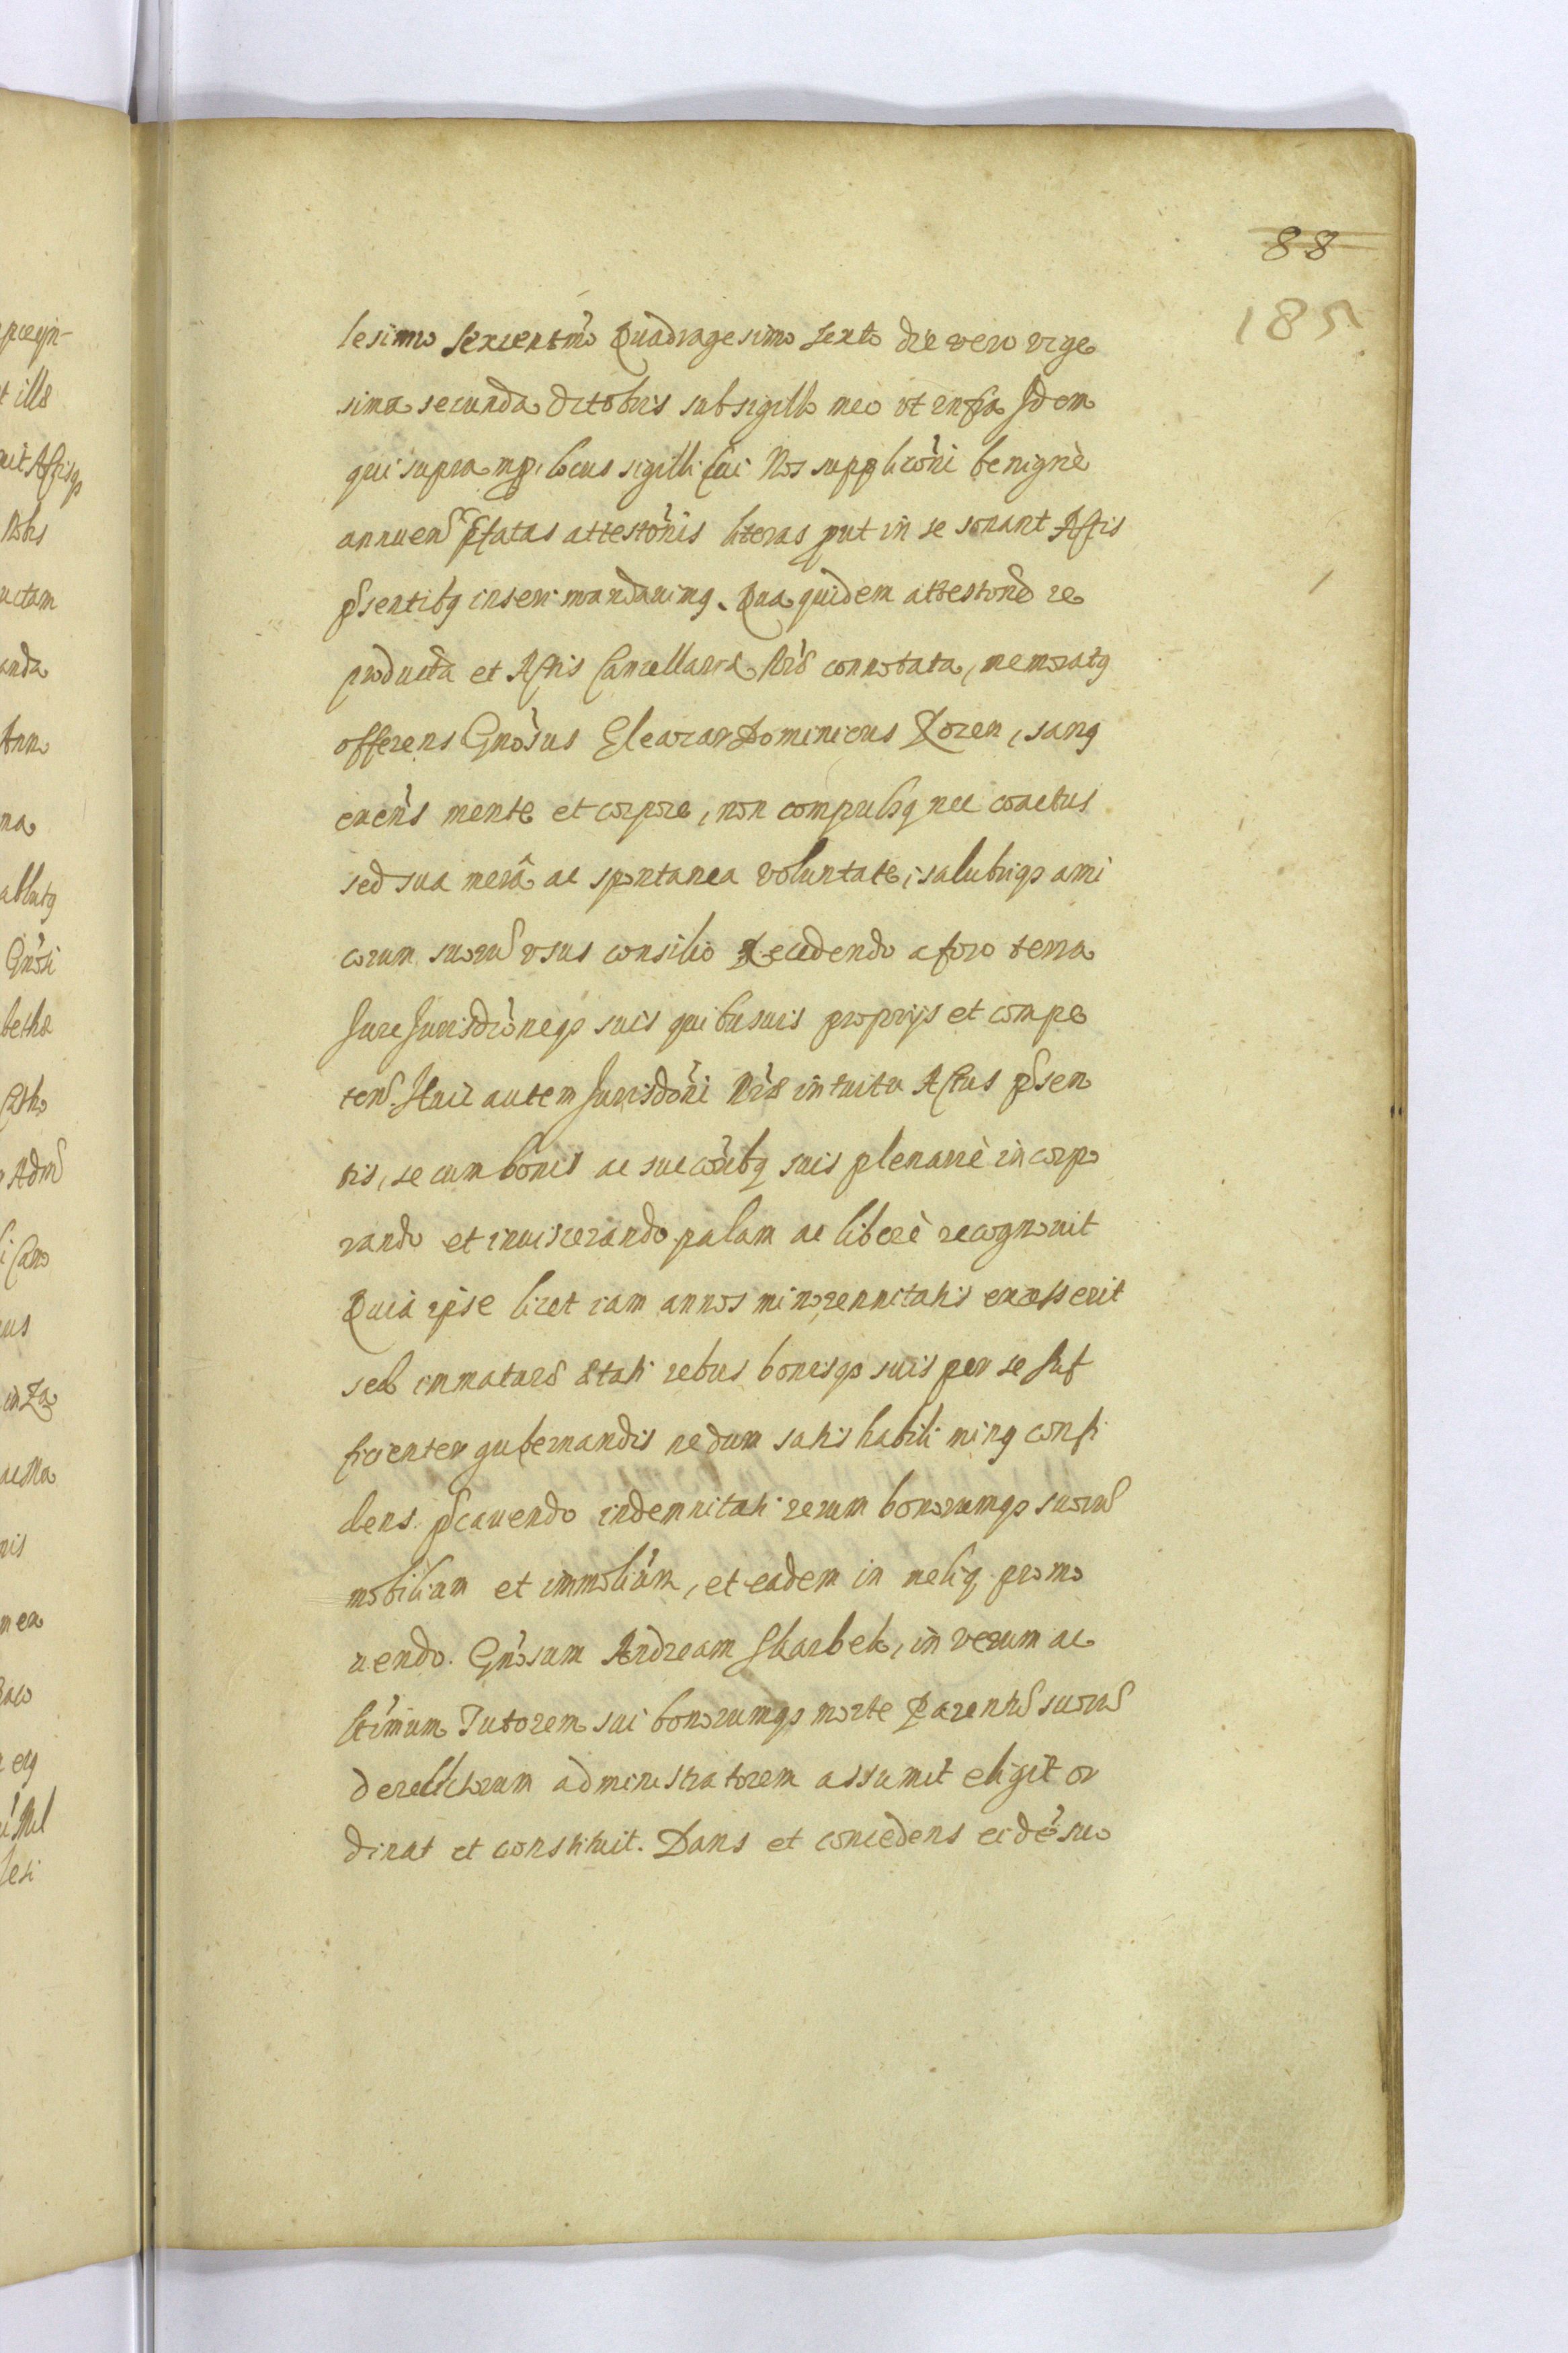 88
185
lesimo sexcentmo Quadragesimo sexto die vero vige
sima secunda Octobris sub sigillo meo ut infra Idem
qui supra mp. locus sigilli Cui Nos supplicõni benignè
annuen pfatas attestõnis literas put in se sonant Actis
psentibq inseri mandavimq. Qua quidem attestone re
producta et Actis Cancellariæ Nræ connotata, memoratq
offerens Gnosus Eleazar Dominicus Koren, sanq
exens mente et corpore, non compulsq nec coactus
sed sua merâ ac spontanea voluntate, salubriqz ami
corum suoru usus consilio Recedendo a foro terra
Jure Jurisdioneqz suis quibusvis proprijs et compe
ten. Huic autem Jurisdõni Nræ intuitu Actus psen
tis, se cum bonis ac succõribq suis plenariè incorpo
rando et inviscerando palam ac liberè recognovit
Quia ipse licet iam annos minorennitatis excesserit
sed immaturæ ætati rebus bonisqz suis per se suf
ficienter gubernandis nedum satis habili minq confi
dens. pcavendo indemnitati rerum bonorumqz suoru
mobilium et immolium, et eadem in meliq promo
vendo. Gnosum Andream Skarbek, in verum ac
ltimum Tutorem sui bonorumqz morte Parentu suoru
derelictorum administratorem assumit eligit or
dinat et constituit. Dans et concedens eidē suo